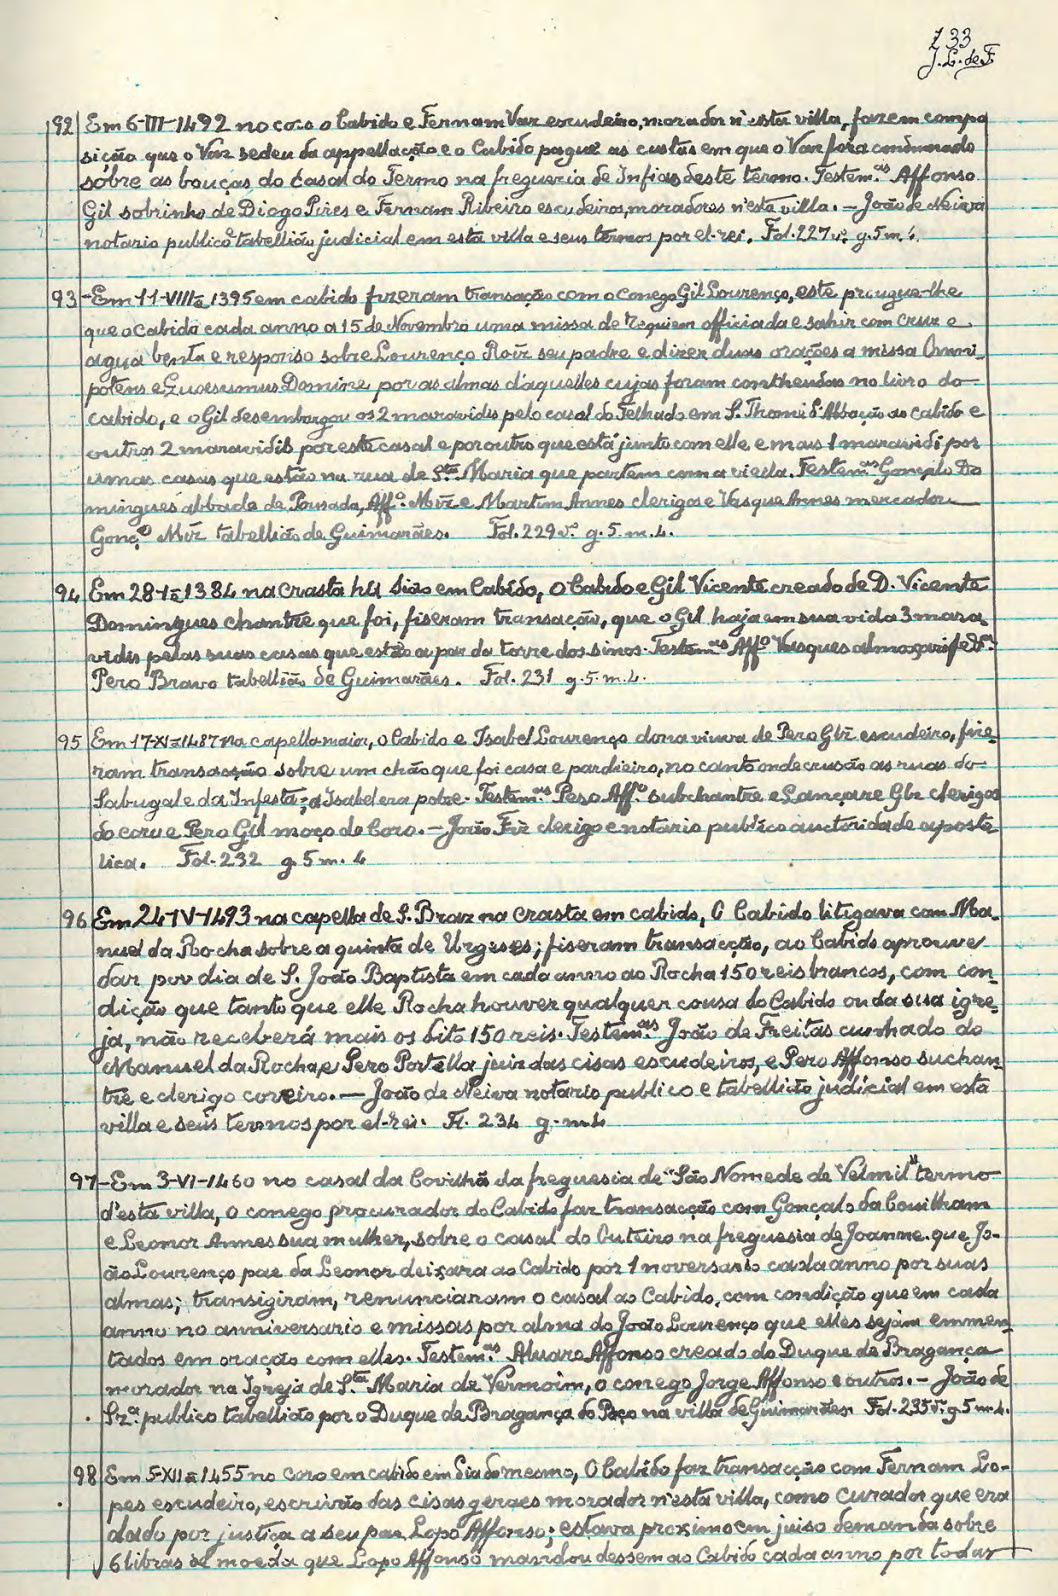 133
J. L. de F.
92 Em 6-III-1492 no coro o Cabido e Fernam Vaz escudeiro, morador n'esta villa, fazem compo
sição que o Vaz sedeu da appellacção e o Cabido pague as custas em que o Vaz fôra condemnado
sobre as bouças do casal do Termo na freguezia de Infias deste termo. Testem.as Affonso
Gil sobrinho de Diogo Pires e Fernam Ribeiro escudeiros, moradores n'esta villa. — João de Neiva
notario publico e tabellião judicial em esta villa e seus termos por el-rei. Fol. 227 v.º g. 5 m. 4.
93 - Em 11-VIII=1395 em cabido fizeram transação com o conego Gil Lourenço, este prougue-lhe
que o cabido cada anno a 15 de Novembro uma missa de requiem officiada e sahir com cruz e
agua benta e responso sobre Lourenço Roiz seu padre e dizer duas orações a missa Omni-
potens e Quoesumus Domine por as almas d'aquelles cujas foram contheudas no livro do
cabido, e o Gil desembargou os 2 maravidis pelo casal do Telhado em S. Thomé d'Abbação ao cabido e
outros 2 maravidis por este casal e por outro que está junto com elle e mais 1 maravidi por
umas casas que estão na rua de S.ta Maria que partem com a viella. Testem.as Gonçalo Do
mingues abbade de Pousada, Aff.º Miz e Martim Annes clerigos e Vasque Annes mercador
Gonç.º Miz tabellião de Guimarães. Fol. 229 v.º g. 5. m. 4.
94 Em 28-I=1384 na crasta hu sião em Cabido, o Cabido e Gil Vicente creado de D. Vicente
Domingues chantre que foi, fiseram transação, que o Gil haja em sua vida 3 mara-
vidis pelas suas casas que estão a par da torre dos sinos. Testem.as Aff.º Vasques almoxarife
Pero Bravo tabellião de Guimarães. Fol. 231 g. 5. m. 4.
95 Em 17-XI=1487 na capella maior, o Cabido e Isabel Lourenço dona viuva de Pero Glz escudeiro, fize-
ram transacção sobre um chão que foi casa e pardieiro, no canto onde crusão as ruas do
Sabugal e da Infesta; a Isabel era pobre. Testem.as Peso Aff.º subchantre e Lançare Glz clerigos
do coro e Pero Gil moço do Coro. — João Fiz clerigo e notario publico auctoridade aposto
lica. Fol. 232 g. 5 m. 4
96 Em 24-IV-1493 na capella de S. Braz na crasta em cabido, O Cabido litigava com Ma-
nuel da Rocha sobre a quinta de Urgeses; fiseram transacção, ao Cabido aprouve
dar por dia de S. João Baptista em cada anno ao Rocha 150 reis brancos, com con-
dição que tanto que elle Rocha houver qualquer cousa do Cabido ou da sua igre-
ja, não receberá mais os dito 150 reis. Testem.as João de Freitas cunhado do
Manuel da Rocha, e Pero Portella juiz das cisas escudeiros, e Pero Affonso suchan-
tre e clerigo coreiro. — João de Neiva notario publico e tabellião judicial em esta
villa e seus termos por el-rei. Fl. 234 g. m. 4
97 - Em 3-VI-1460 no casal da Covilhã da freguesia de "São Nomede de Velmil" termo
d'esta villa, o conego procurador do Cabido faz transacção com Gonçalo da Couilham
e Leonor Annes sua mulher, sobre o casal do Outeiro na freguesia de Joanne que Jo-
ão Lourenço pae da Leonor deixara ao Cabido por 1 noversario cada anno por suas
almas; transigiram, renunciaram o casal ao Cabido, com condição que em cada
anno no anniversario e missas por alma do João Lourenço que elles sejam emmen-
tados em oração com elles. Testem.as Alvaro Affonso creado do Duque de Bragança
morador na Igreja de S.ta Maria de Vermoim, o conego Jorge Affonso e outros. — João de
publico tabellião por o Duque de Bragança do Paço na villa de Guimarães. Fol. 235 v.º g. 5 m. 4.
98 Em 5-XII=1455 no coro em cabido em dia do mesmo, O Cabido faz transacção com Fernam Lo-
pes escudeiro, escrivão das cisas geraes morador n'esta villa, como curador que era
dado por justiça a seu pae, Lopo Affonso; estava proximo em juiso demanda sobre
6 libras de moeda que Lopo Affonso mandou dessem ao Cabido cada anno por todas